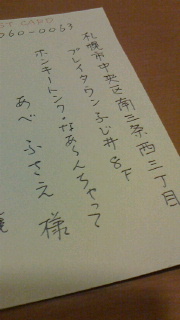 POST CARD
060-0063
札幌市中央区南三条西三丁目
プレイタウンふじ井8F
ホンキートンク・なあ〜んちゃって
あべ ふさえ 様